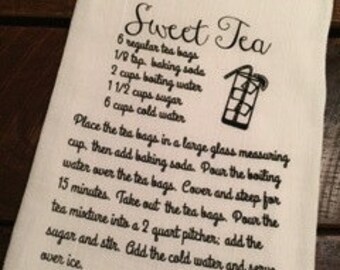 Sweet Tea
6 regular tea bags
1/8 tsp. baking soda
2 cups boiling water
1 1/2 cups sugar
6 cups cold water
Place the tea bags in a large glass measuring
cup, then add baking soda. Pour the boiling
water over the tea bags. Cover and steep for
15 minutes. Take out the tea bags. Pour the
tea mixture into a 2 quart pitcher; add the
sugar and stir. Add the cold water and serve
over ice.